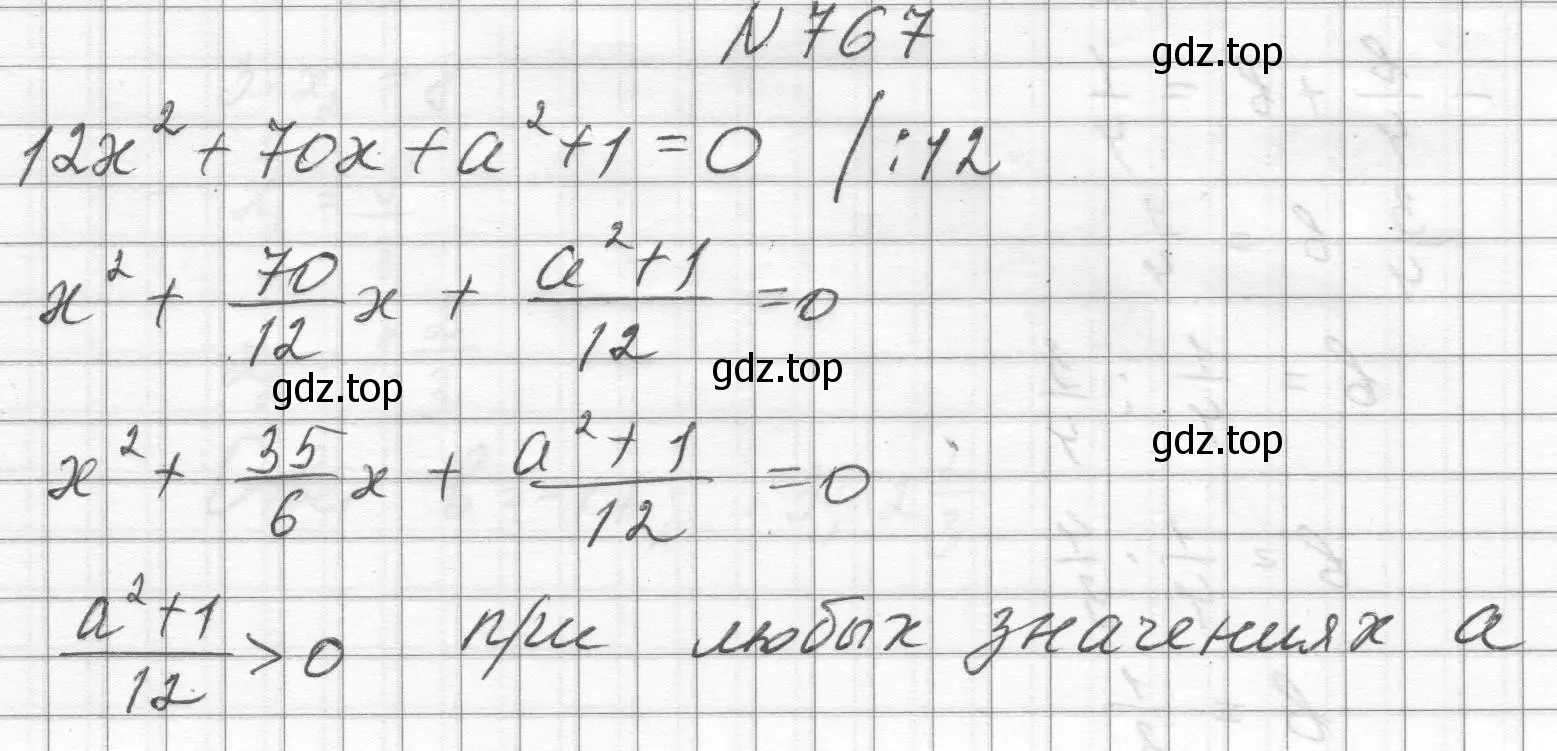 N 767
gdz.top
12x² + 70x + a² + 1 = 0 / :12
x² + 70/12 x + (a² + 1)/12 = 0
gdz.top
gdz.top
x² + 35/6 x + (a² + 1)/12 = 0
gdz.top
(a² + 1)/12 > 0 при любых значениях a